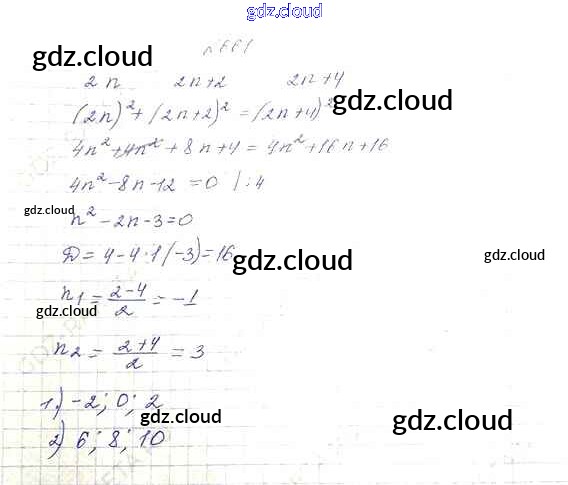 gdz.cloud
№661
gdz.cloud gdz.cloud
2n 2n+2 2n+4
(2n)²+(2n+2)²=(2n+4)²
4n²+4n²+8n+4=4n²+16n+16
4n²-8n-12=0 /:4
gdz.cloud
n²-2n-3=0
Д=4-4·1(-3)=16
gdz.cloud gdz.cloud
n1=\frac{2-4}{2}=-1
gdz.cloud
n2=\frac{2+4}{2}=3
1) -2; 0; 2
gdz.cloud gdz.cloud
2) 6; 8; 10